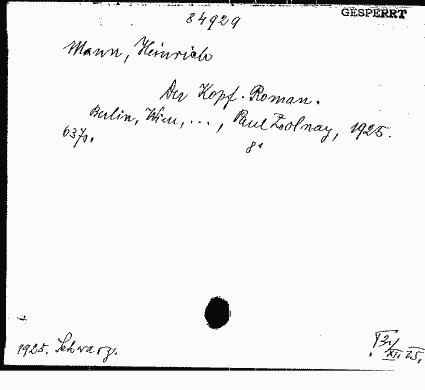 84929
GESPERRT
Mann, Heinrich
Der Kopf. Roman.
Berlin, Wien, ..., Paul Zsolnay, 1925.
637 S.
8°
1925. Schwarz.
XI. 25.